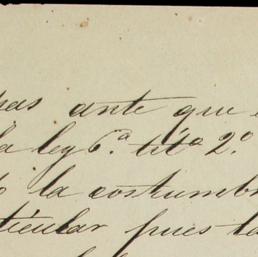 pas ante que
la ley 6.ª titº 2.º
la costumbr
ticular pues la